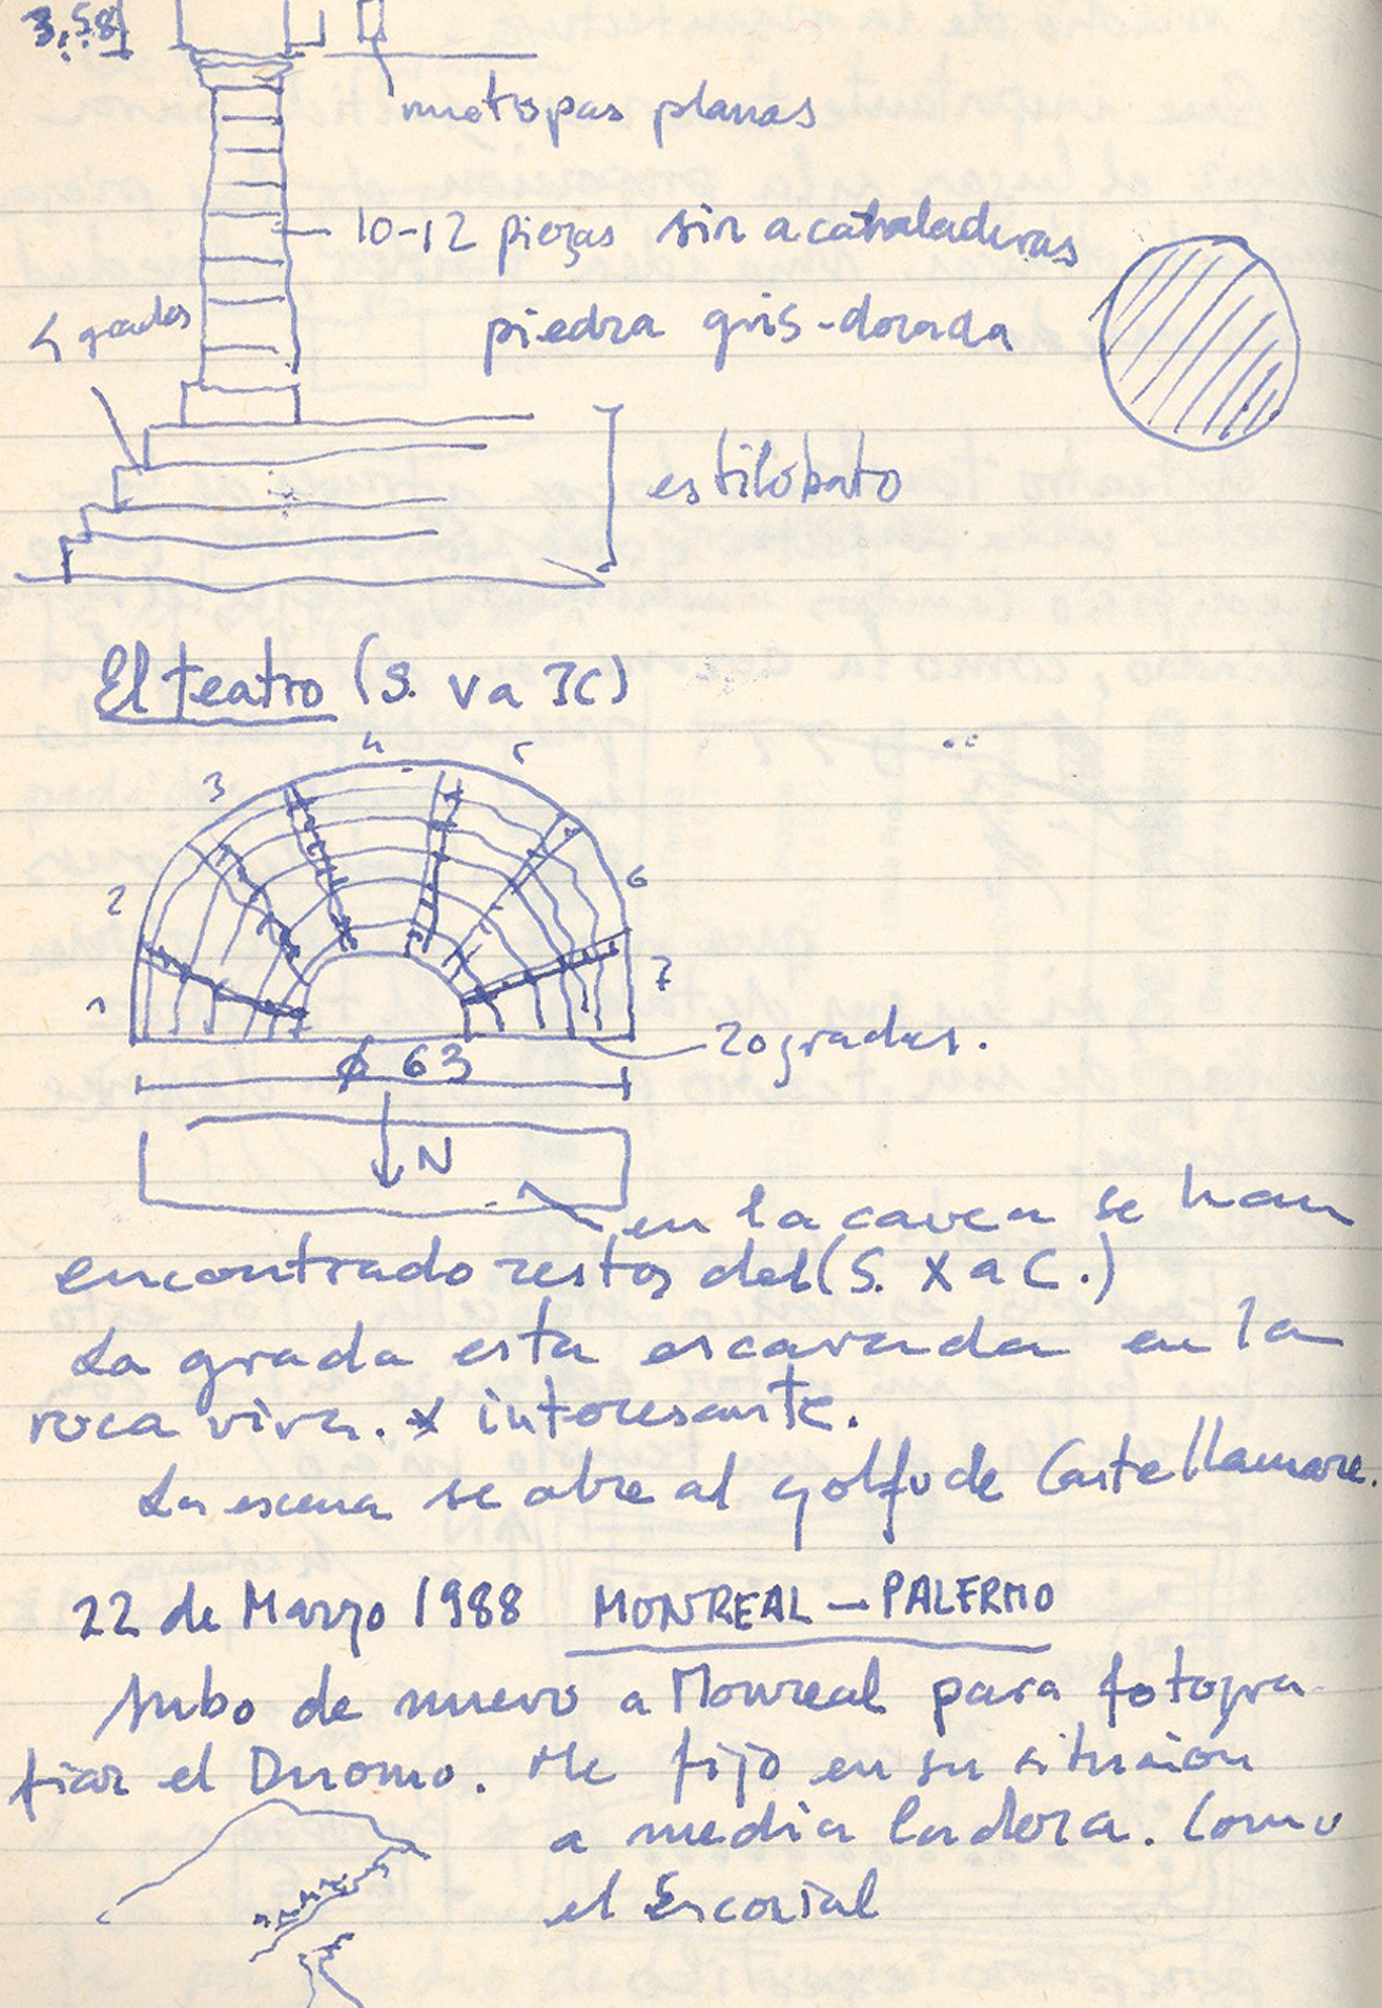 3,58
metopas planas
10-12 piezas sin acanaladuras
4 gradas
piedra gris-dorada
estilobato
El teatro (S. V a JC)
1 2 3 4 5 6 7
20 gradas.
ϕ 63
N
en la cavea se han
encontrado restos del (S. X a C.)
La grada esta escavada en la
roca viva. * interesante.
La escena se abre al golfo de Castellamare.
22 de Marzo 1988 MONREAL - PALERMO
Subo de nuevo a Monreal para fotogra
fiar el Duomo. Me fijo en su situacion
a media ladera. Como
el Escorial